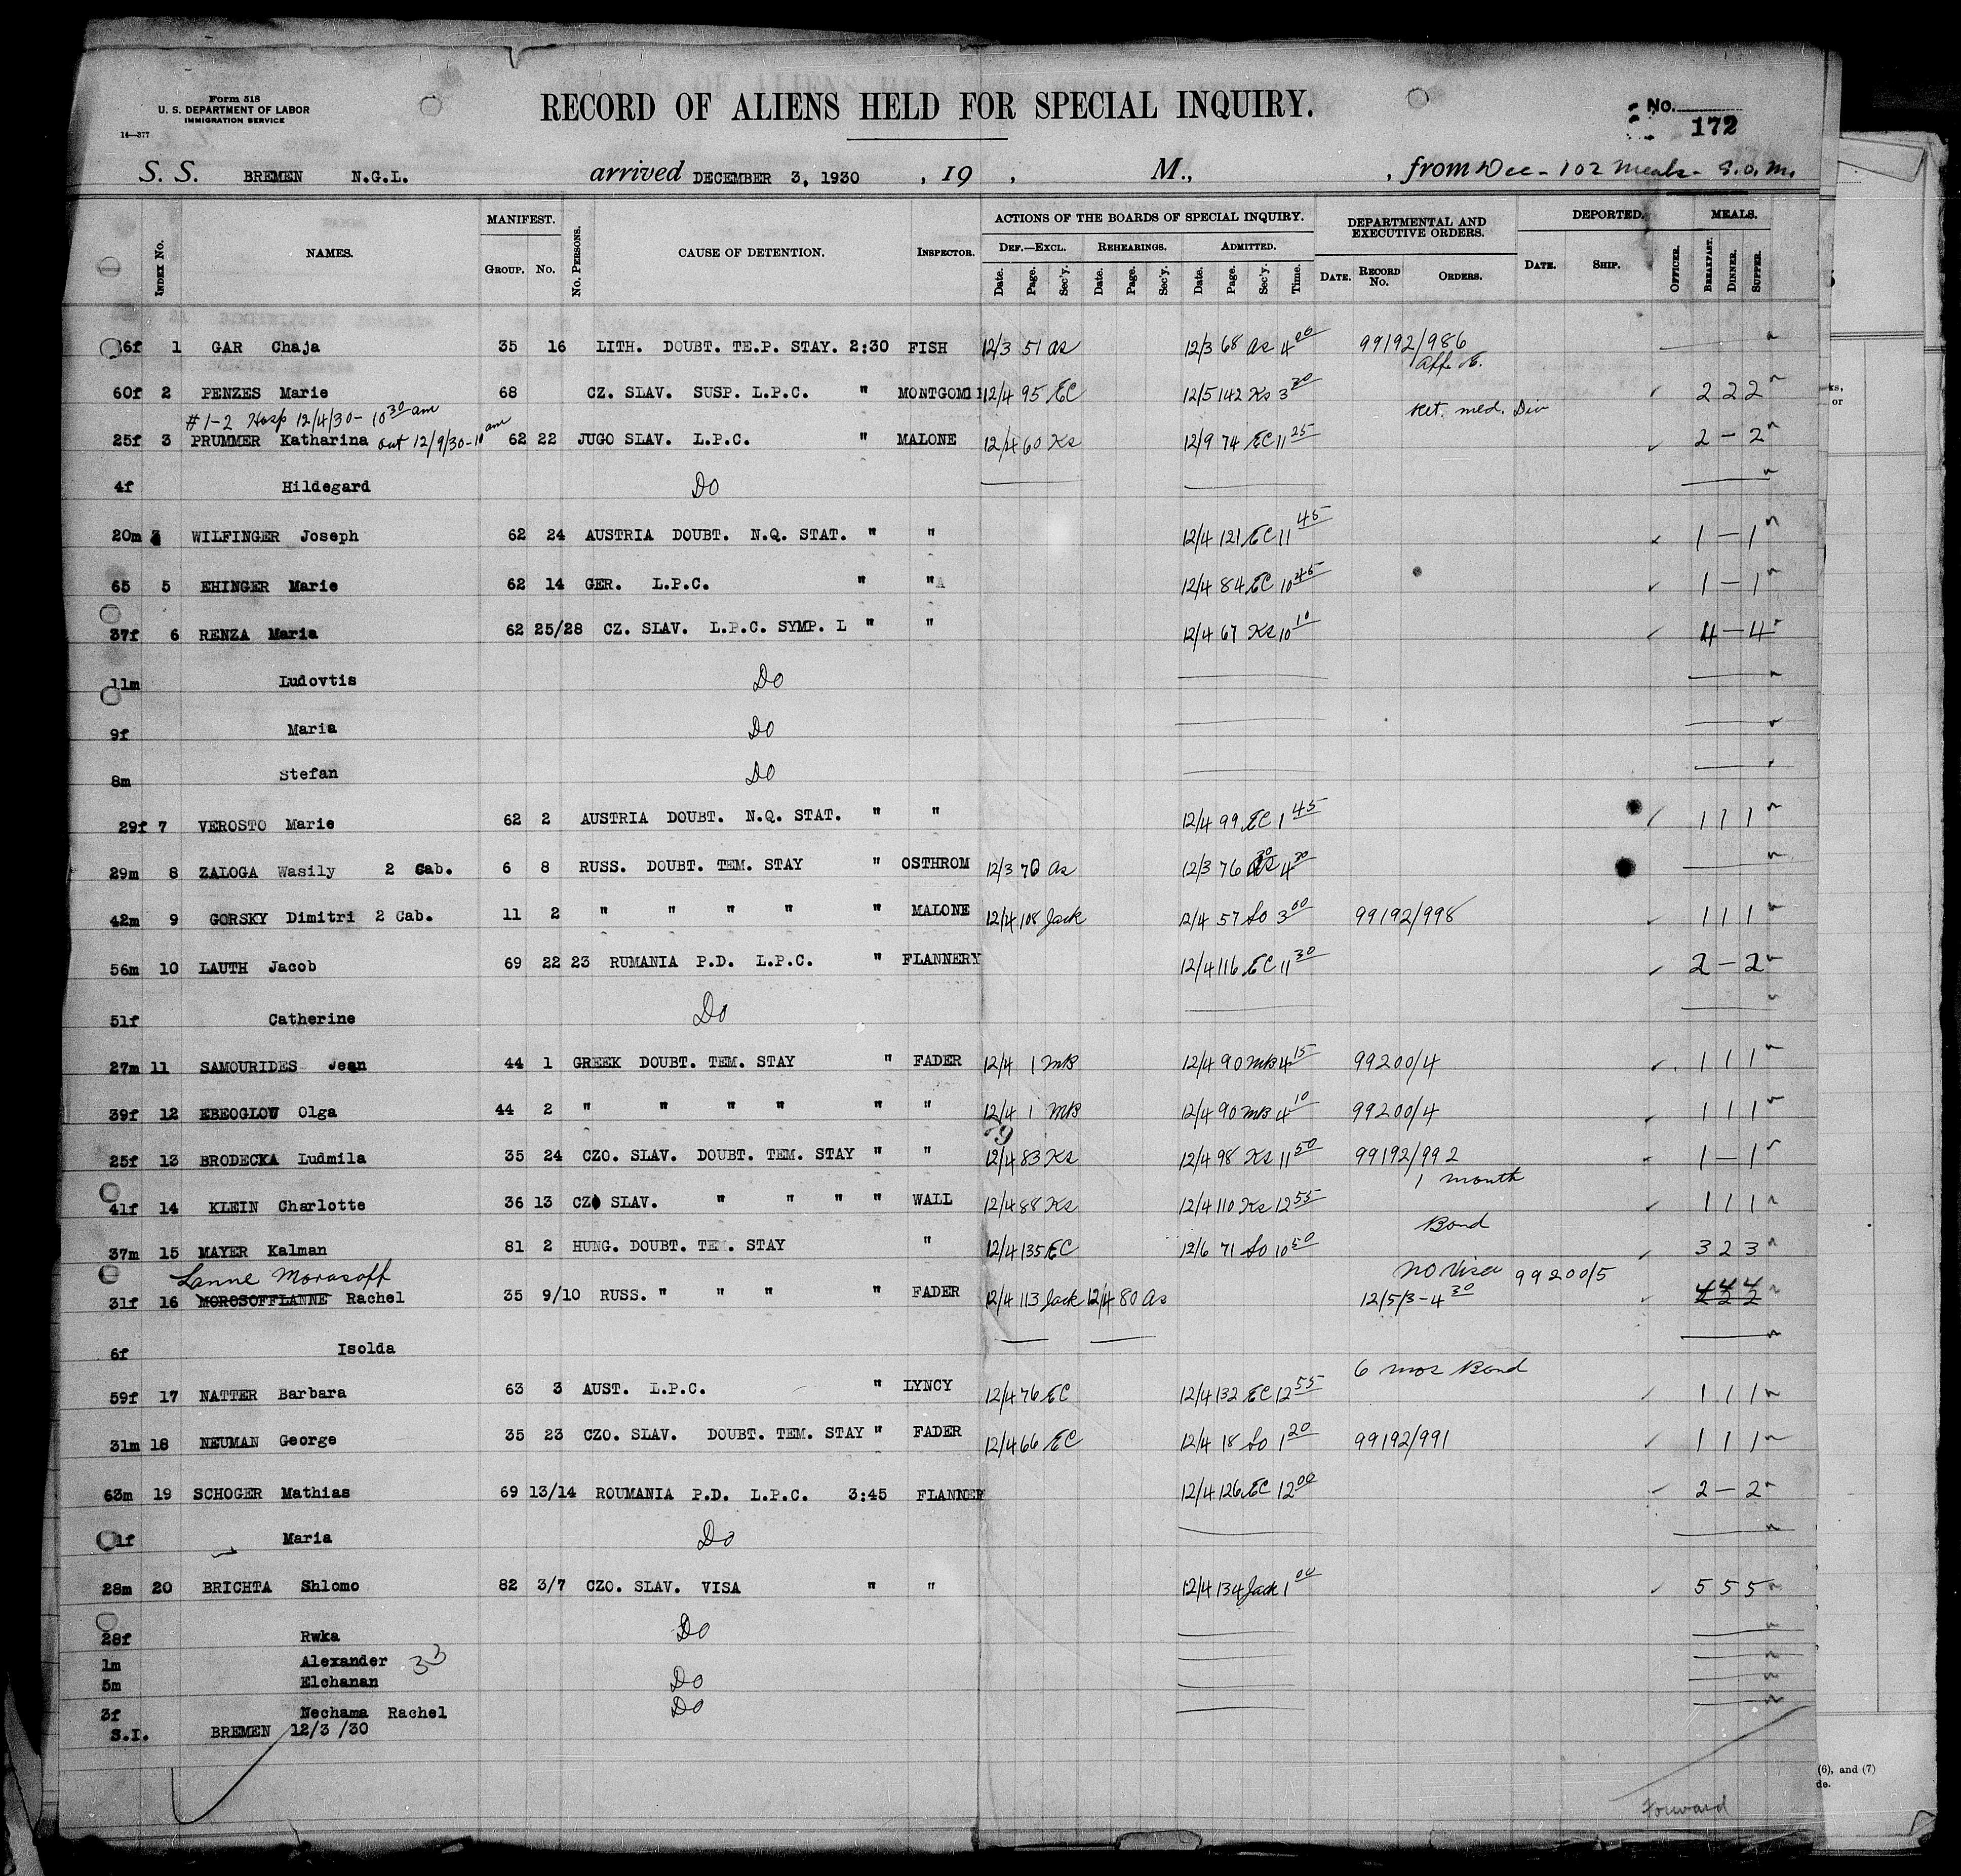 Form 518
U. S. DEPARTMENT OF LABOR
IMMIGRATION SERVICE
14—377
RECORD OF ALIENS HELD FOR SPECIAL INQUIRY.
No.
172
S. S. BREMEN N.G.L. arrived DECEMBER 3, 1930 , 19 , M., , from Dec - 102 Meals - S.O.M.
INDEX NO. NAMES. MANIFEST. GROUP. NO. NO. PERSONS. CAUSE OF DETENTION. INSPECTOR. ACTIONS OF THE BOARDS OF SPECIAL INQUIRY. DEPARTMENTAL AND EXECUTIVE ORDERS. DEPORTED. MEALS.
DEF.—EXCL. REHEARINGS. ADMITTED.
Date. Page. Sec'y. Date. Page. Sec'y. Date. Page. Sec'y. Time. DATE. RECORD No. ORDERS. DATE. SHIP. OFFICER. BREAKFAST. DINNER. SUPPER.
6f 1 GAR Chaja 35 16 LITH. DOUBT. TE.P. STAY. 2:30 FISH 12/3 51 as 12/3 68 as 4 00 99192/986
60f 2 PENZES Marie 68 CZ. SLAV. SUSP. L.P.C. " MONTGOM 12/4 95 EC 12/5 142 Ks 3 30 2 2 2
#1-2 Hosp 12/4/30 - 10 30 am Ret. med. Div
25f 3 PRUMMER Katharina out 12/9/30 - 10 am 62 22 JUGO SLAV. L.P.C. " MALONE 12/4 60 Ks 12/9 74 EC 11 25 2 — 2
4f Hildegard Do
20m WILFINGER Joseph 62 24 AUSTRIA DOUBT. N.Q. STAT. " " 12/4 121 EC 11 45 1 — 1
65 5 EHINGER Marie 62 14 GER. L.P.C. " " 12/4 84 EC 10 45 1 — 1
37f 6 RENZA Maria 62 25/28 CZ. SLAV. L.P.C. SYMP. L " " 12/4 67 Ks 10 10 4 — 4
11m Ludovtis Do
9f Maria Do
8m Stefan Do
29f 7 VEROSTO Marie 62 2 AUSTRIA DOUBT. N.Q. STAT. " " 12/4 99 EC 1 45 1 1 1
29m 8 ZALOGA Wasily 2 Cab. 6 8 RUSS. DOUBT. TEM. STAY " OSTHROM 12/3 70 as 12/3 76 as 4 30
42m 9 GORSKY Dimitri 2 Cab. 11 2 " " " " " MALONE 12/4 108 Jack 12/4 57 So 3 00 99192/998 1 1 1
56m 10 LAUTH Jacob 69 22 23 RUMANIA P.D. L.P.C. " FLANNERY 12/4 116 EC 11 30 2 — 2
51f Catherine Do
27m 11 SAMOURIDES Jean 44 1 GREEK DOUBT. TEM. STAY " FADER 12/4 1 MB 12/4 90 MB 4 15 99200/4 1 1 1
39f 12 EBEOGLOU Olga 44 2 " " " " " " 12/4 1 MB 12/4 90 MB 4 10 99200/4 1 1 1
25f 13 BRODECKA Ludmila 35 24 CZO. SLAV. DOUBT. TEM. STAY " " 12/4 83 Ks 12/4 98 Ks 11 50 99192/992 1 — 1
1 month
41f 14 KLEIN Charlotte 36 13 CZO SLAV. " " " " WALL 12/4 88 Ks 12/4 110 Ks 12 55 1 1 1
Bond
37m 15 MAYER Kalman 81 2 HUNG. DOUBT. TEM. STAY " 12/4 135 EC 12/6 71 So 10 50 3 2 3
Lanne Morosoff No Visa 99200/5
31f 16 MOROSOFFLANNE Rachel 35 9/10 RUSS. " " " " FADER 12/4 113 Jack 12/4 80 as 12/5/3-4 30
6f Isolda
6 mos Bond
59f 17 NATTER Barbara 63 3 AUST. L.P.C. " LYNCY 12/4 76 EC 12/4 132 EC 12 55 1 1 1
31m 18 NEUMAN George 35 23 CZO. SLAV. DOUBT. TEM. STAY " FADER 12/4 66 EC 12/4 18 So 1 20 99192/991 1 1 1
63m 19 SCHOGER Mathias 69 13/14 ROUMANIA P.D. L.P.C. 3:45 FLANNER 12/4 126 EC 12 00 2 — 2
1f Maria Do
28m 20 BRICHTA Shlomo 82 3/7 CZO. SLAV. VISA " " 12/4 134 Jack 1 00 5 5 5
28f Rwka Do
1m Alexander 33
5m Elchanan Do
3f Nechama Rachel Do
S.I. BREMEN 12/3 /30
Forward
ks,
or
(6), and (7)
de.